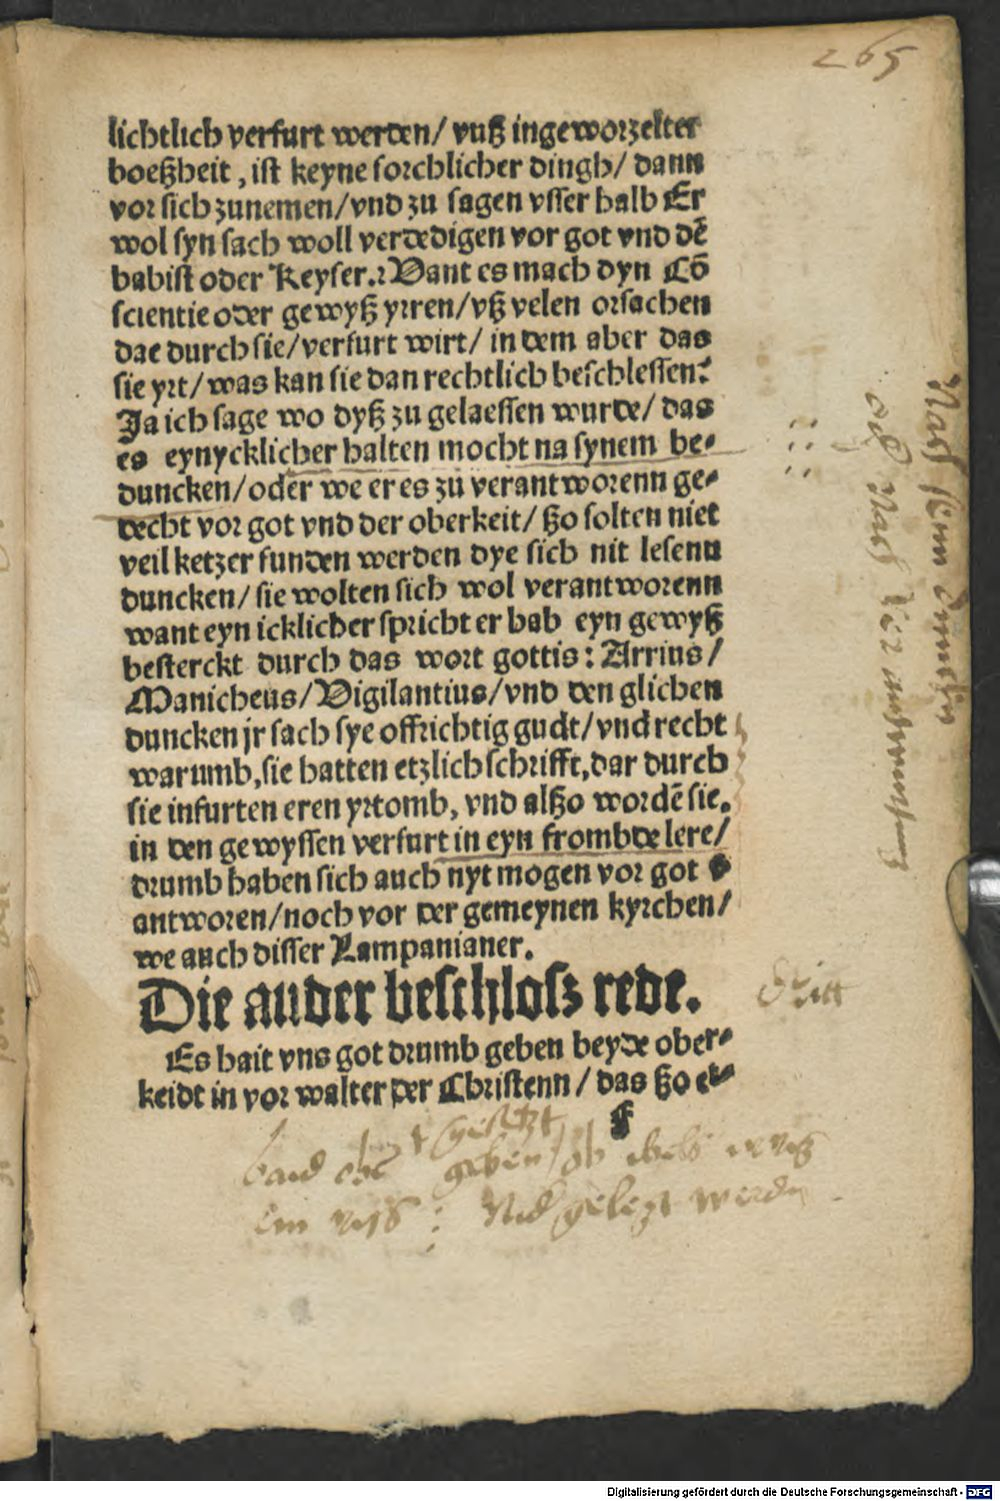 265
lichtlich verfurt werden/ vuß ingeworzelter
boeßheit, ist keyne sorchlicher dingh/ dann
vor sich zunemen/vnd zu sagen vsser halb Er
wol syn sach woll verdedigen vor got vnd dē
babist oder Keyser.? Vant es mach dyn Cō
scientie oder gewyß yrren/vß velen orsachen
dae durch sie/verfurt wirt/ in dem aber das
sie yrt/was kan sie dan rechtlich beschlessen?
Ja ich sage wo dyß zu gelaessen wurde/ das
es eynycklicher halten mocht na synem be-
duncken/oder we er es zu verantworenn ge-
decht vor got vnd der oberkeit/ ßo solten niet
veil ketzer funden werden dye sich nit lesenn
duncken/ sie wolten sich wol verantworenn
want eyn icklicher spricht er hab eyn gewyß
besterckt durch das wort gottis: Arrius/
Manicheus/Vigilantius/vnd den glichen
duncken jr sach sye offrichtig gudt/vnd recht
warumb,sie hatten etzlich schrifft,dar durch
sie infurten eren yrtomb, vnd alßo wordē sie.
in den gewyssen verfurt in eyn frombde lere/
drumb haben sich auch nyt mogen vor got
antworen/noch vor der gemeynen kyrchen/
we auch disser Lampanianer.
Die ander beschlosz rede.
Es hait vns got drumb geben beyde ober-
keidt in vor walter der Christenn/ das ßo et-
f
gesetzt
geben
gelegt werden